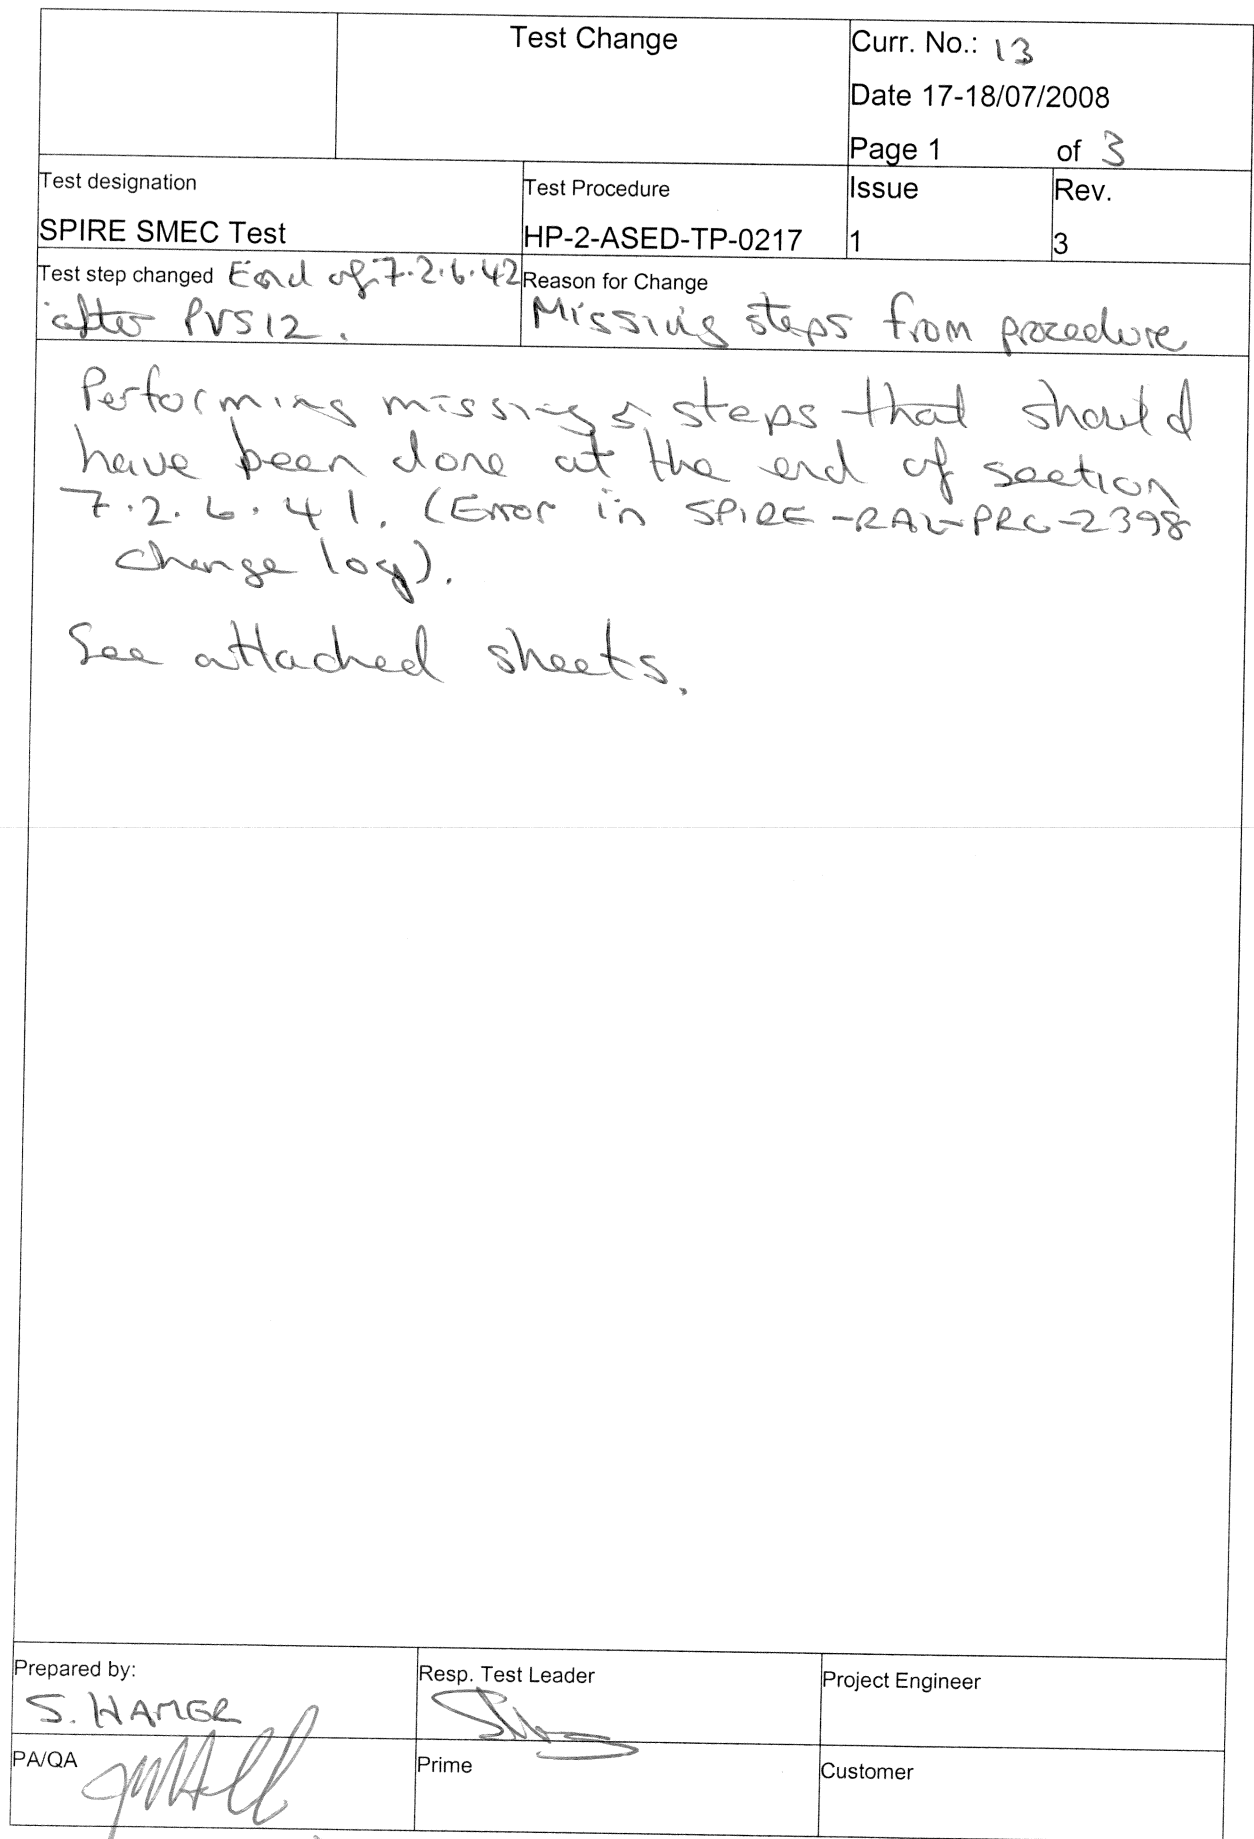 Test Change
Curr. No.: 13
Date 17-18/07/2008
Page 1 of 3
Test designation
SPIRE SMEC Test
Test Procedure
HP-2-ASED-TP-0217
Issue
1
Rev.
3
Test step changed End of 7.2.6.42
after PVS12.
Reason for Change
Missing steps from procedure
Performing missing steps that should
have been done at the end of section
7.2.6.41. (Error in SPIRE-RAL-PRC-2398
change log).
See attached sheets.
Prepared by:
S. HAMER
Resp. Test Leader
Project Engineer
PA/QA
Prime
Customer